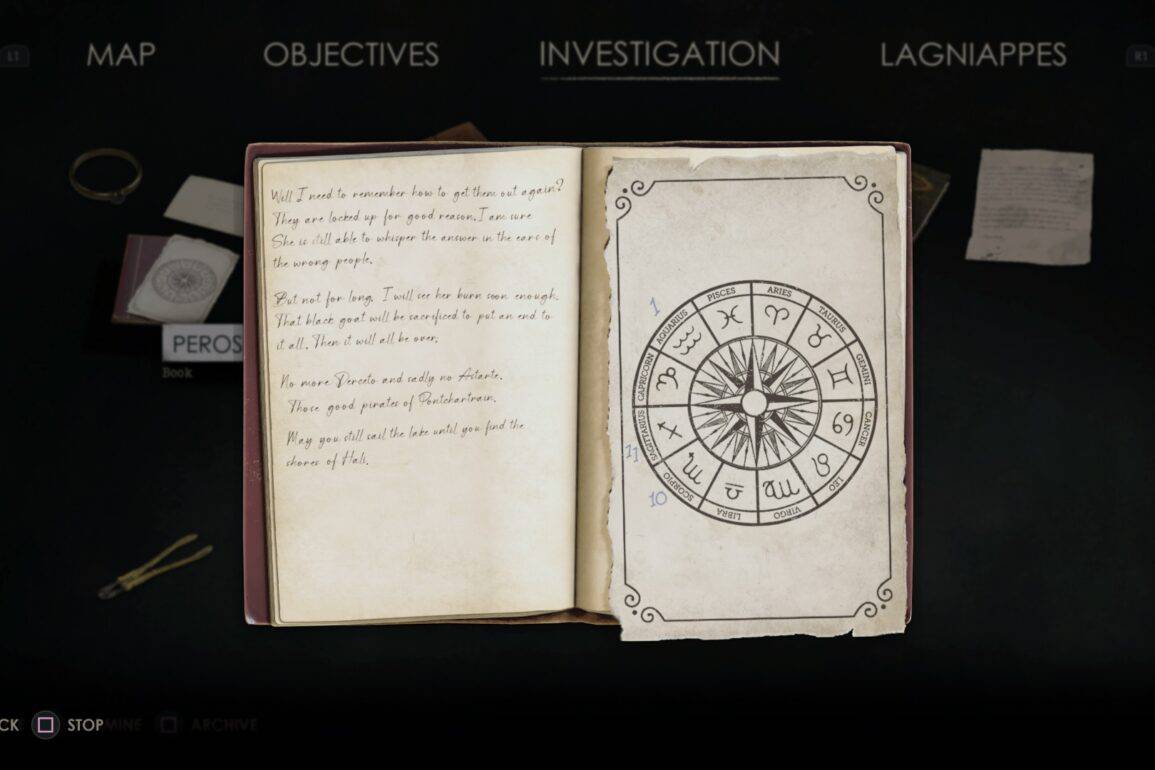 L1
MAP
OBJECTIVES
INVESTIGATION
LAGNIAPPES
R1
Well I need to remember how to get them out again?
They are locked up for good reason. I am sure
She is still able to whisper the answer in the ears of
the wrong people.
But not for long. I will see her burn soon enough.
That black goat will be sacrificed to put an end to
it all. Then it will all be over.
No more Derceto and sadly no Astarte.
Those good pirates of Pontchartrain.
May you still sail the lake until you find the
shores of Hali.
1
11
10
PISCES
ARIES
TAURUS
GEMINI
CANCER
LEO
VIRGO
LIBRA
SCORPIO
SAGITTARIUS
CAPRICORN
AQUARIUS
PEROS
Book
CK
STOP
MINE
ARCHIVE